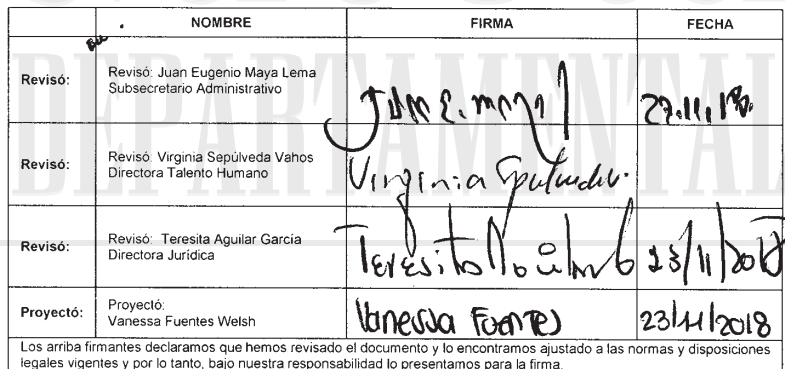 NOMBRE FIRMA FECHA
Revisó: Revisó: Juan Eugenio Maya Lema
Subsecretario Administrativo
Juan E. Maya 27.11.18.
Revisó: Revisó: Virginia Sepúlveda Vahos
Directora Talento Humano
Virginia Sepulveda.
Revisó: Revisó: Teresita Aguilar García
Directora Jurídica
Teresita Aguilar G 23/11/2018
Proyectó: Proyectó:
Vanessa Fuentes Welsh
Vanessa Fuentes 23/11/2018
Los arriba firmantes declaramos que hemos revisado el documento y lo encontramos ajustado a las normas y disposiciones
legales vigentes y por lo tanto, bajo nuestra responsabilidad lo presentamos para la firma.
DEPARTAMENTAL